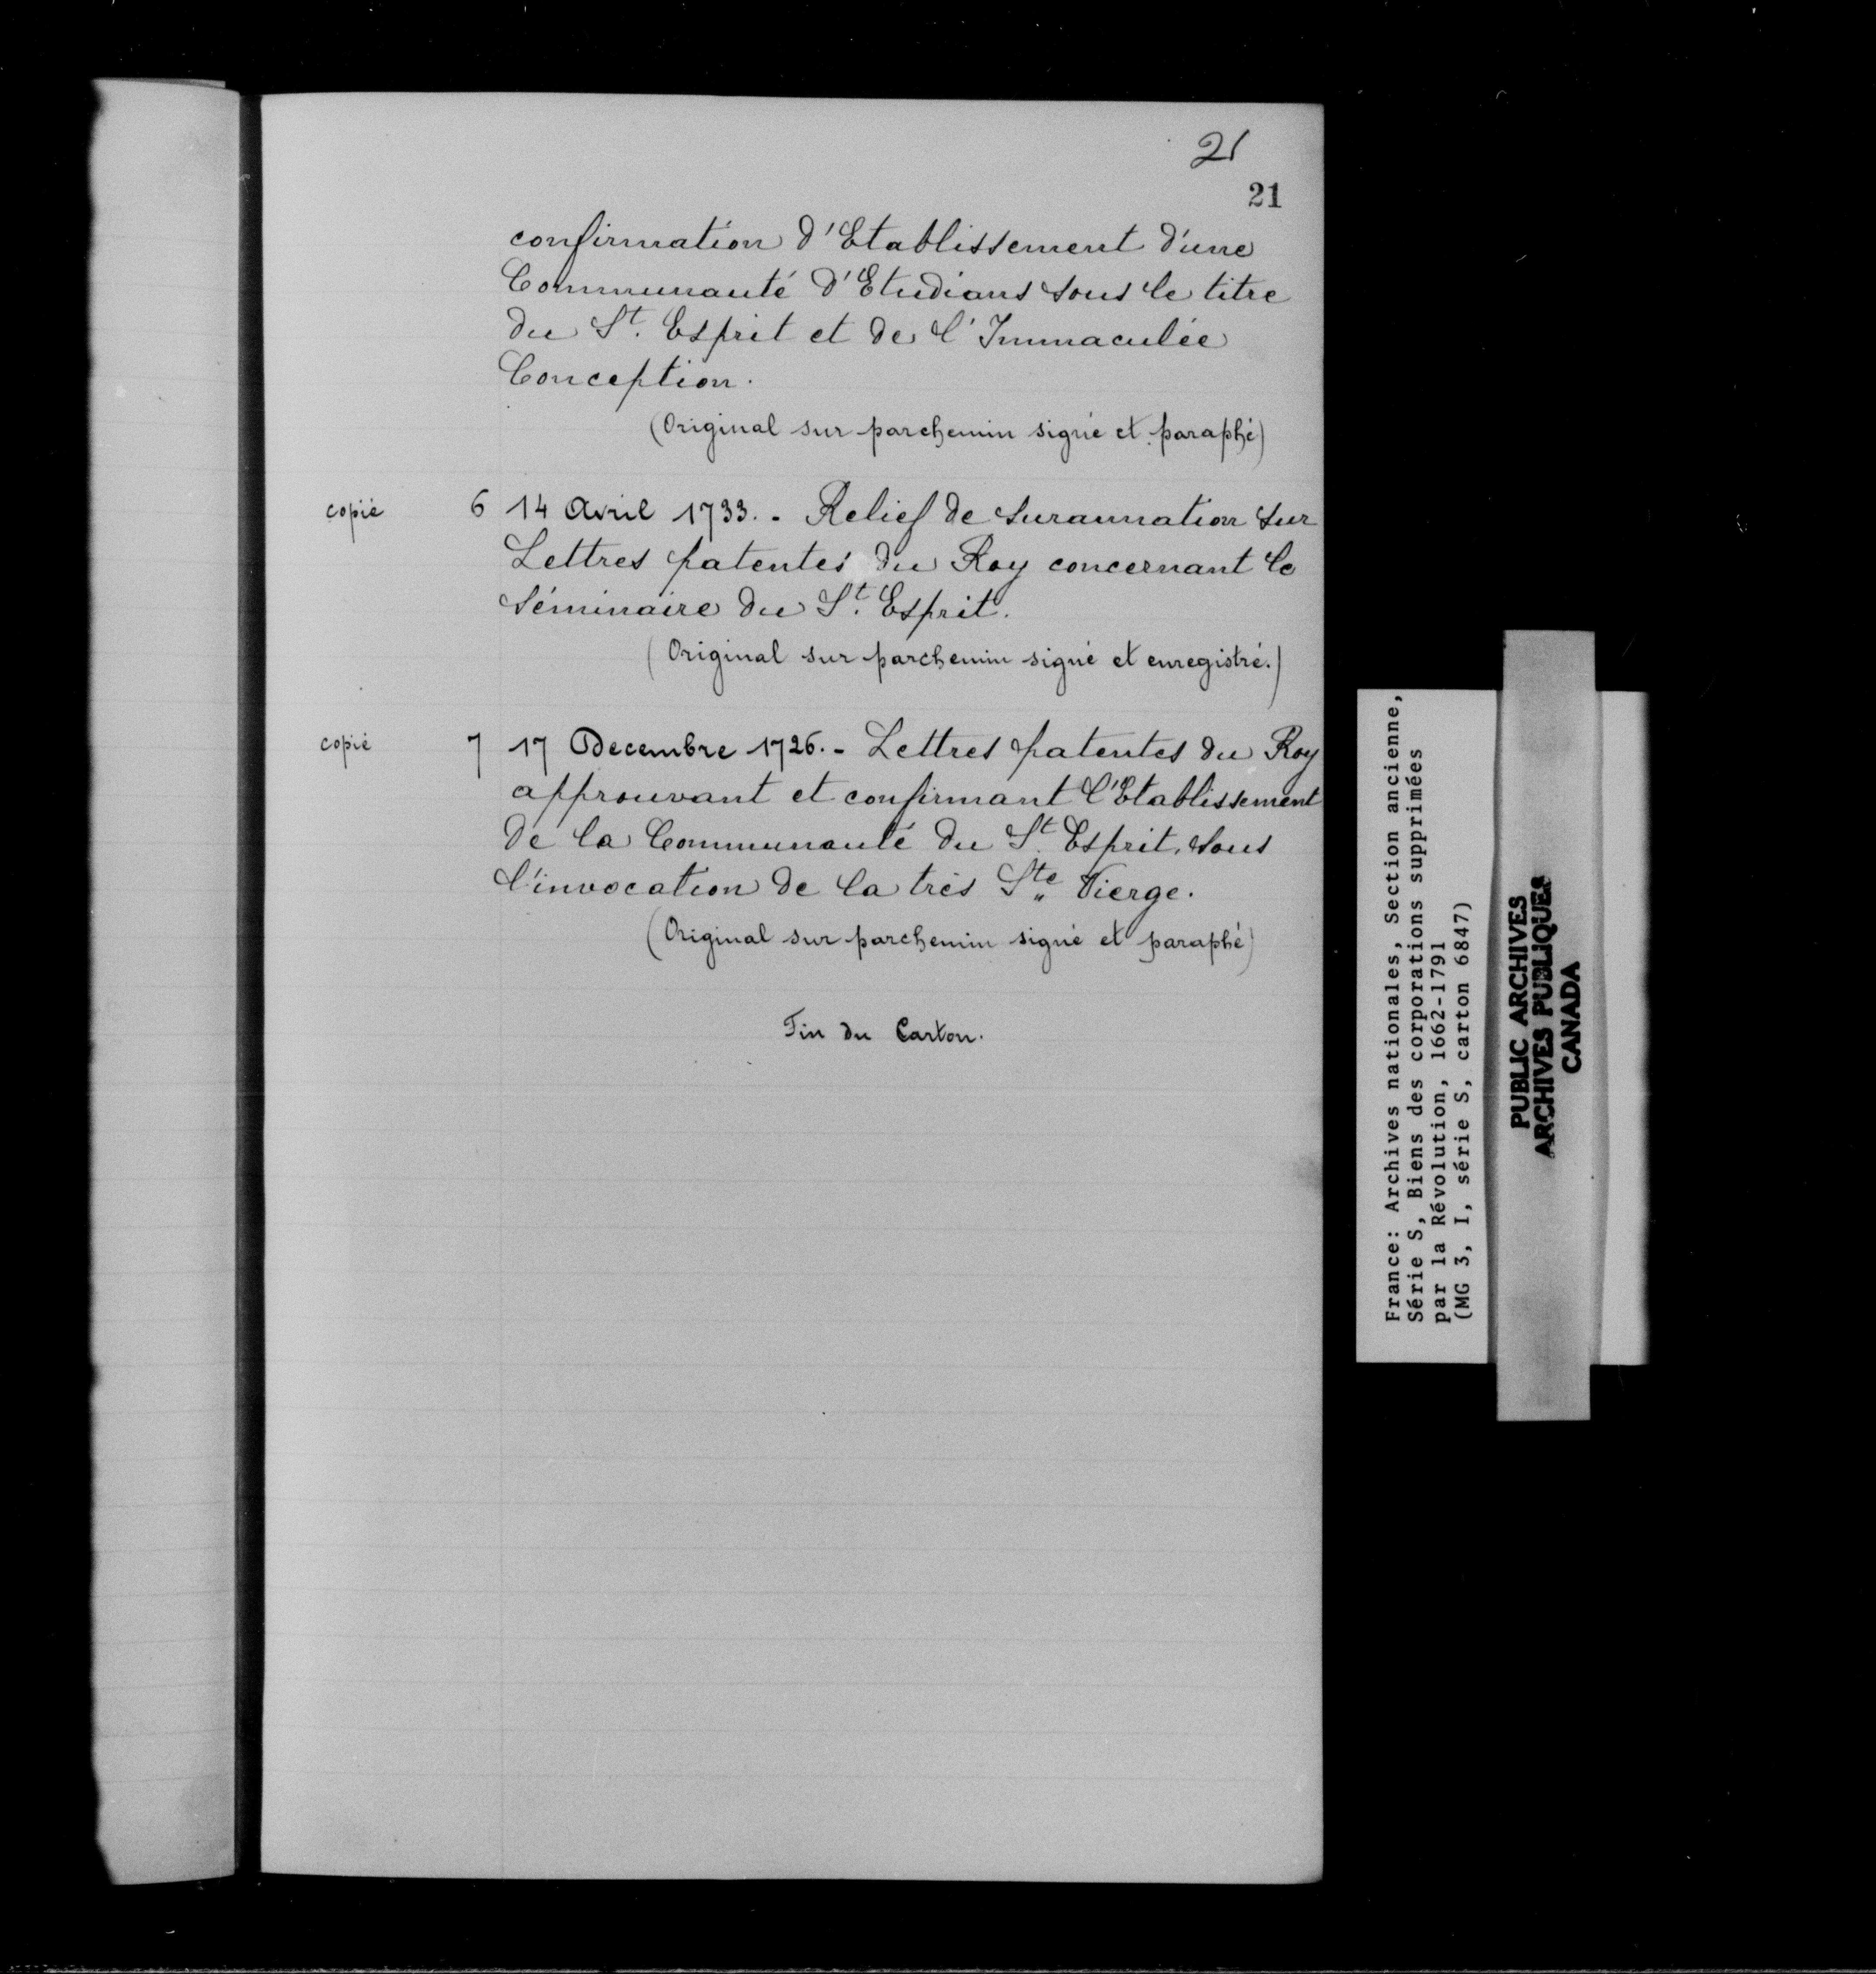 21
21
confirmation d'Etablissement d'une
Communauté d'Etudians sous le titre
du St. Esprit et de l'Immaculée
Conception.
(Original sur parchemin signé et paraphé)
copié 6 14 Avril 1733. - Relief de surannation sur
Lettres patentes du Roy concernant le
Séminaire du St. Esprit.
(Original sur parchemin signé et enregistré.)
copié 7 17 Decembre 1726. - Lettres patentes du Roy
approuvant et confirmant l'Etablissement
de la Communauté du St. Esprit, sous
l'invocation de la très Ste Vierge.
(Original sur parchemin signé et paraphé)
Fin du Carton.
France: Archives nationales, Section ancienne,
Série S, Biens des corporations supprimées
par la Révolution, 1662-1791
(MG 3, I, série S, carton 6847)
PUBLIC ARCHIVES
ARCHIVES PUBLIQUES
CANADA